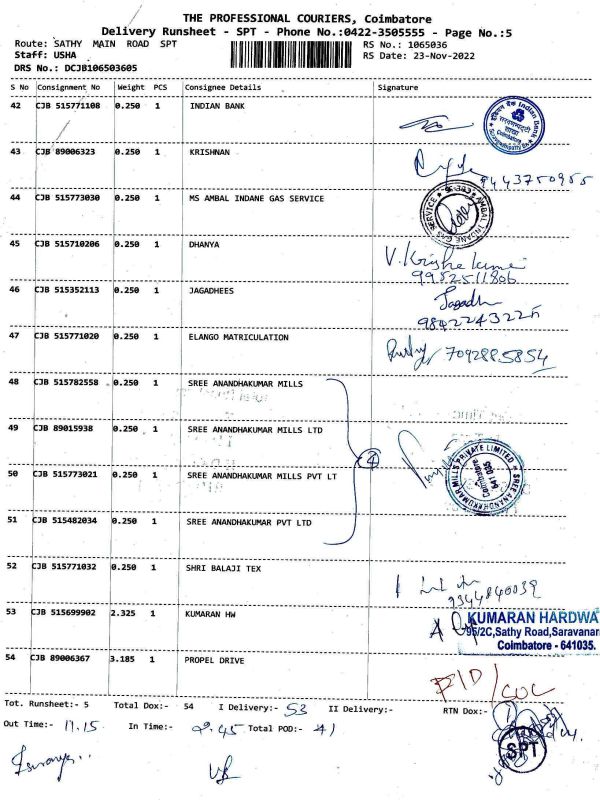 THE PROFESSIONAL COURIERS, Coimbatore
Delivery Runsheet - SPT - Phone No.:0422-3505555 - Page No.:5
Route: SATHY MAIN ROAD SPT RS No.: 1065036
Staff: USHA RS Date: 23-Nov-2022
DRS No.: DCJB106503605
S No Consignment No Weight PCS Consignee Details Signature
42 CJB 515771108 0.250 1 INDIAN BANK
43 CJB 89006323 0.250 1 KRISHNAN
9443750955
44 CJB 515773030 0.250 1 MS AMBAL INDANE GAS SERVICE
AMBAL INDANE GAS SERVICE
45 CJB 515710206 0.250 1 DHANYA
V. Krishnakumar
9952511806
46 CJB 515352113 0.250 1 JAGADHEES
Jagadh
9842243225
47 CJB 515771020 0.250 1 ELANGO MATRICULATION
7092885854
48 CJB 515782558 0.250 1 SREE ANANDHAKUMAR MILLS
49 CJB 89015938 0.250 1 SREE ANANDHAKUMAR MILLS LTD
4
50 CJB 515773021 0.250 1 SREE ANANDHAKUMAR MILLS PVT LT
SREE ANANDHAKUMAR MILLS PRIVATE LIMITED
Coimbatore
641 005
51 CJB 515482034 0.250 1 SREE ANANDHAKUMAR PVT LTD
52 CJB 515771032 0.250 1 SHRI BALAJI TEX
9344840039
53 CJB 515699902 2.325 1 KUMARAN HW
KUMARAN HARDWA
95/2C,Sathy Road,Saravanam
Coimbatore - 641035.
54 CJB 89006367 3.185 1 PROPEL DRIVE
Tot. Runsheet:- 5 Total Dox:- 54 I Delivery:- 53 II Delivery:- RTN Dox:- 1
Out Time:- 11.15 In Time:- 2.45 Total POD:- 41
SPT